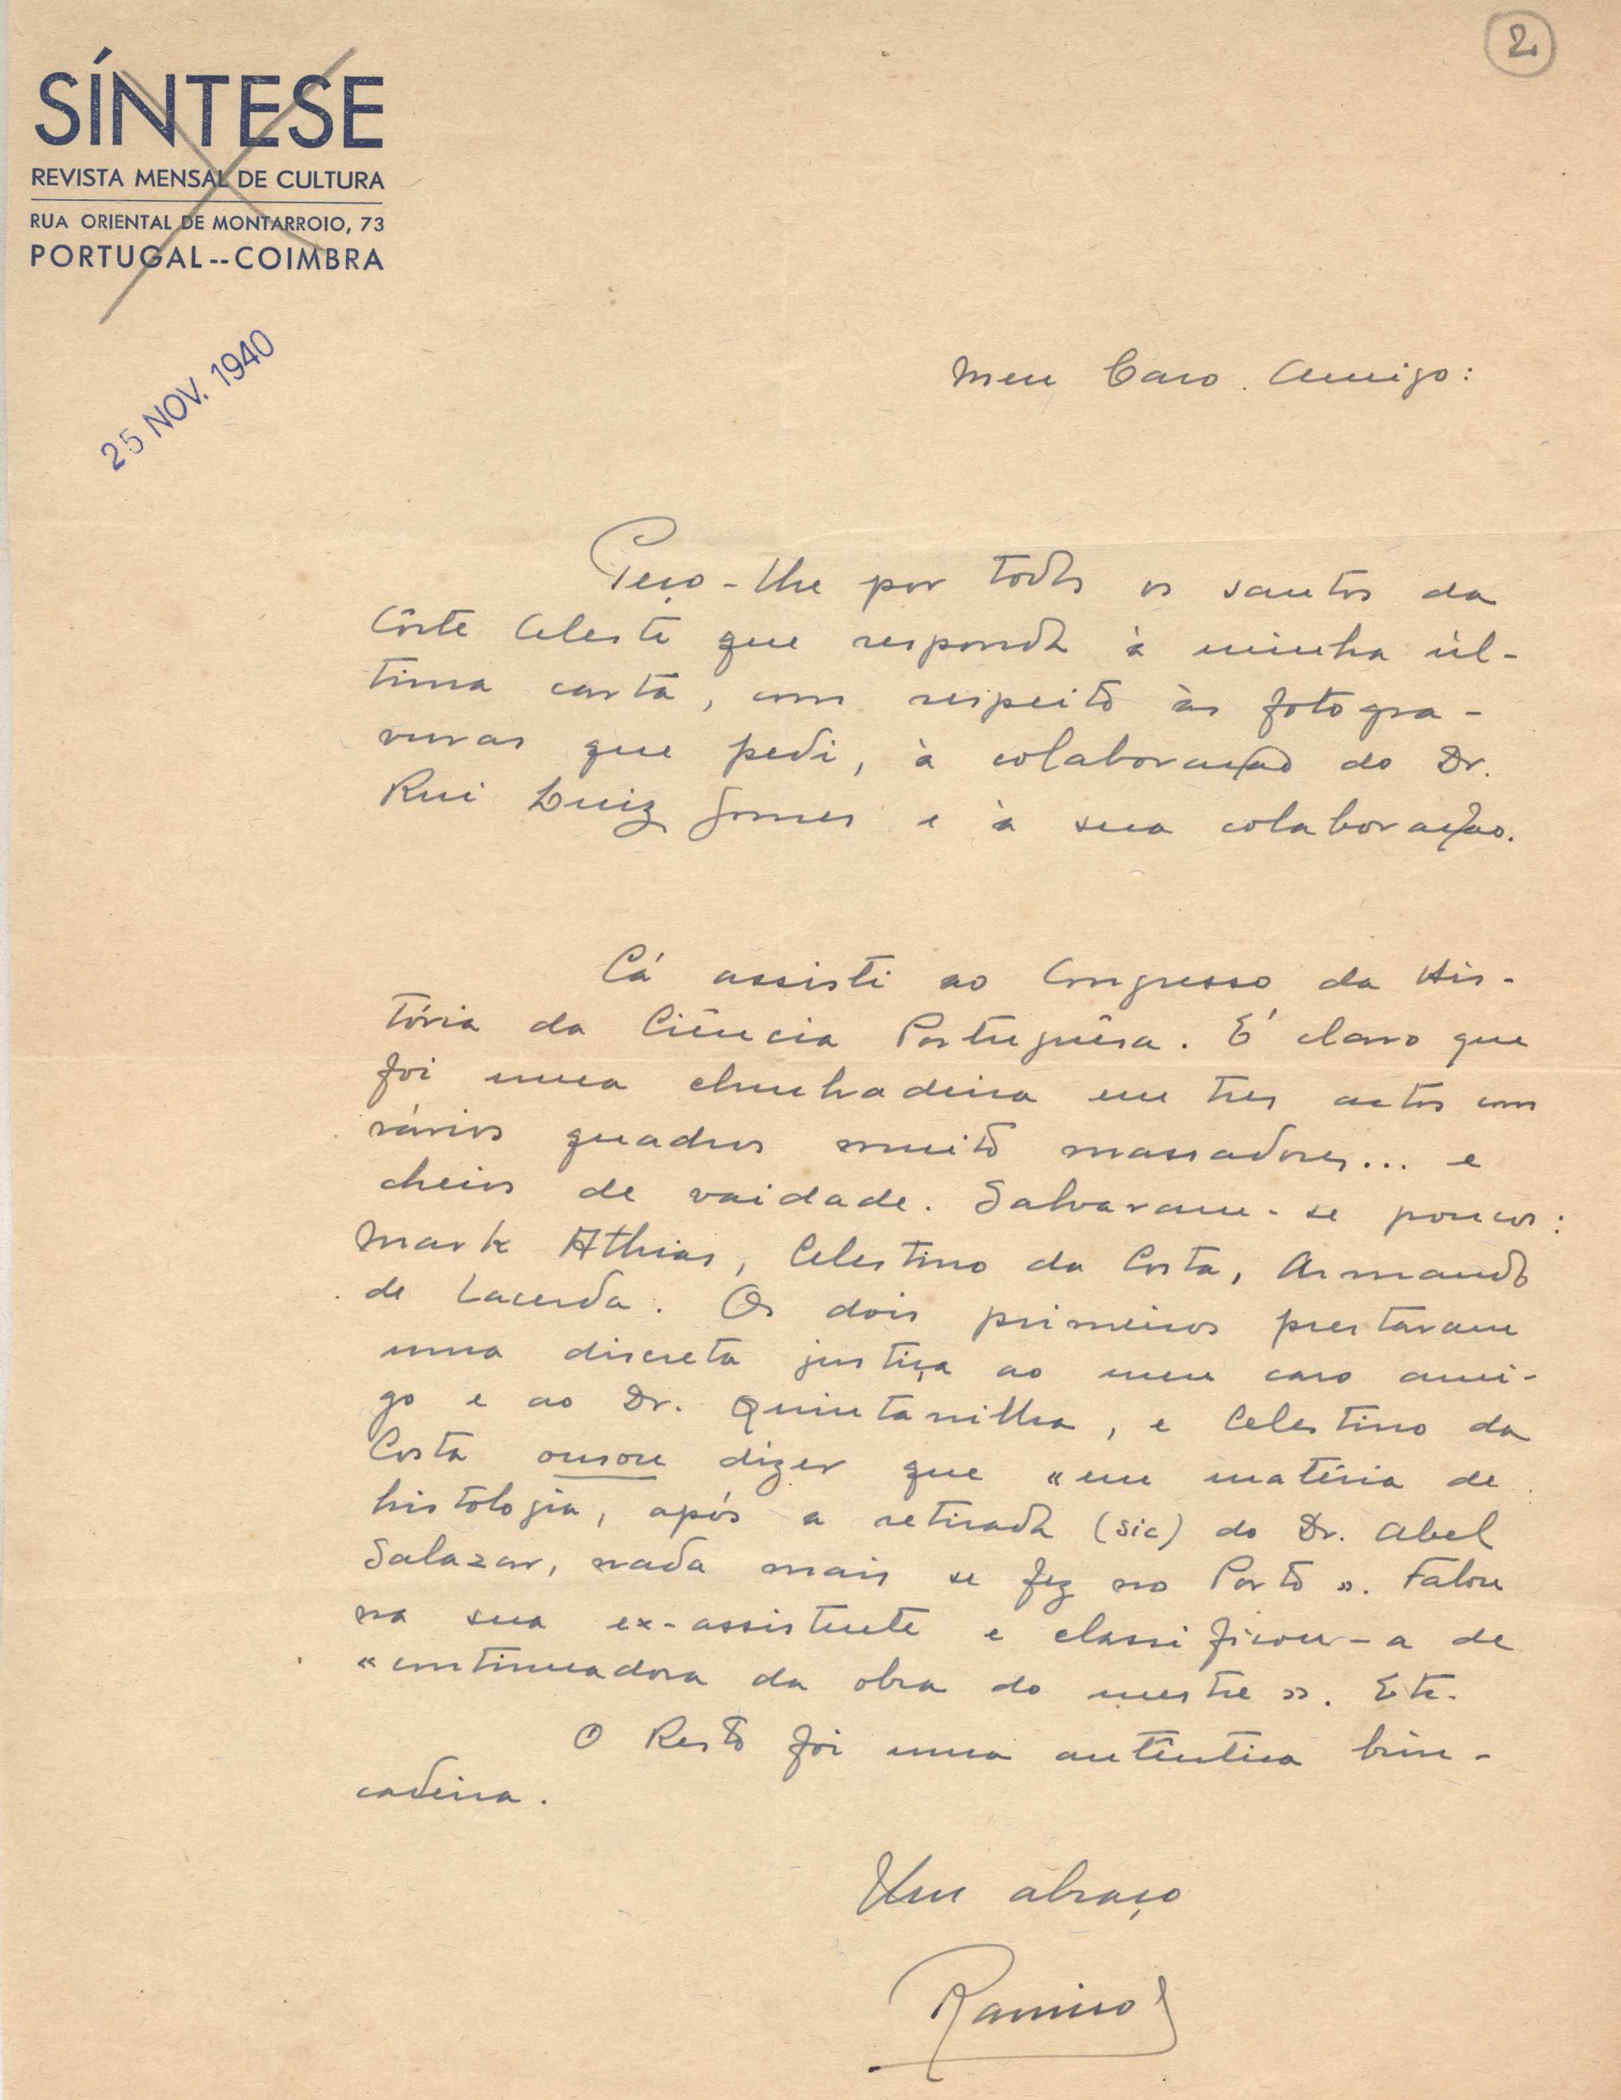 2
SÍNTESE
REVISTA MENSAL DE CULTURA
RUA ORIENTAL DE MONTARROIO, 73
PORTUGAL--COIMBRA
25 NOV. 1940
Meu Caro Amigo:
Peço-lhe por todos os santos da
Côrte Celeste que responda à minha úl-
tima carta, com respeito às fotogra-
vuras que pedi, à colaboração do Dr.
Rui Luiz Gomes e à sua colaboração.
Cá assisti ao Congresso da His-
tória da Ciência Portuguêsa. É claro que
foi uma chuchadeira em tres actos com
vários quadros muito massadores... e
cheios de vaidade. Salvaram-se poucos:
Mark Athias, Celestino da Costa, Armando
de Lacerda. Os dois primeiros prestaram
uma discreta justiça ao meu caro ami-
go e ao Dr. Quintanilha, e Celestino da
Costa ousou dizer que «em matéria de
histologia, após a retirada (sic) do Dr. Abel
Salazar, nada mais se fez no Porto». Falou
na sua ex-assistente e classificou-a de
«continuadora da obra do mestre». Etc.
O Resto foi uma autêntica brin-
cadeira.
Um abraço
Ramiro